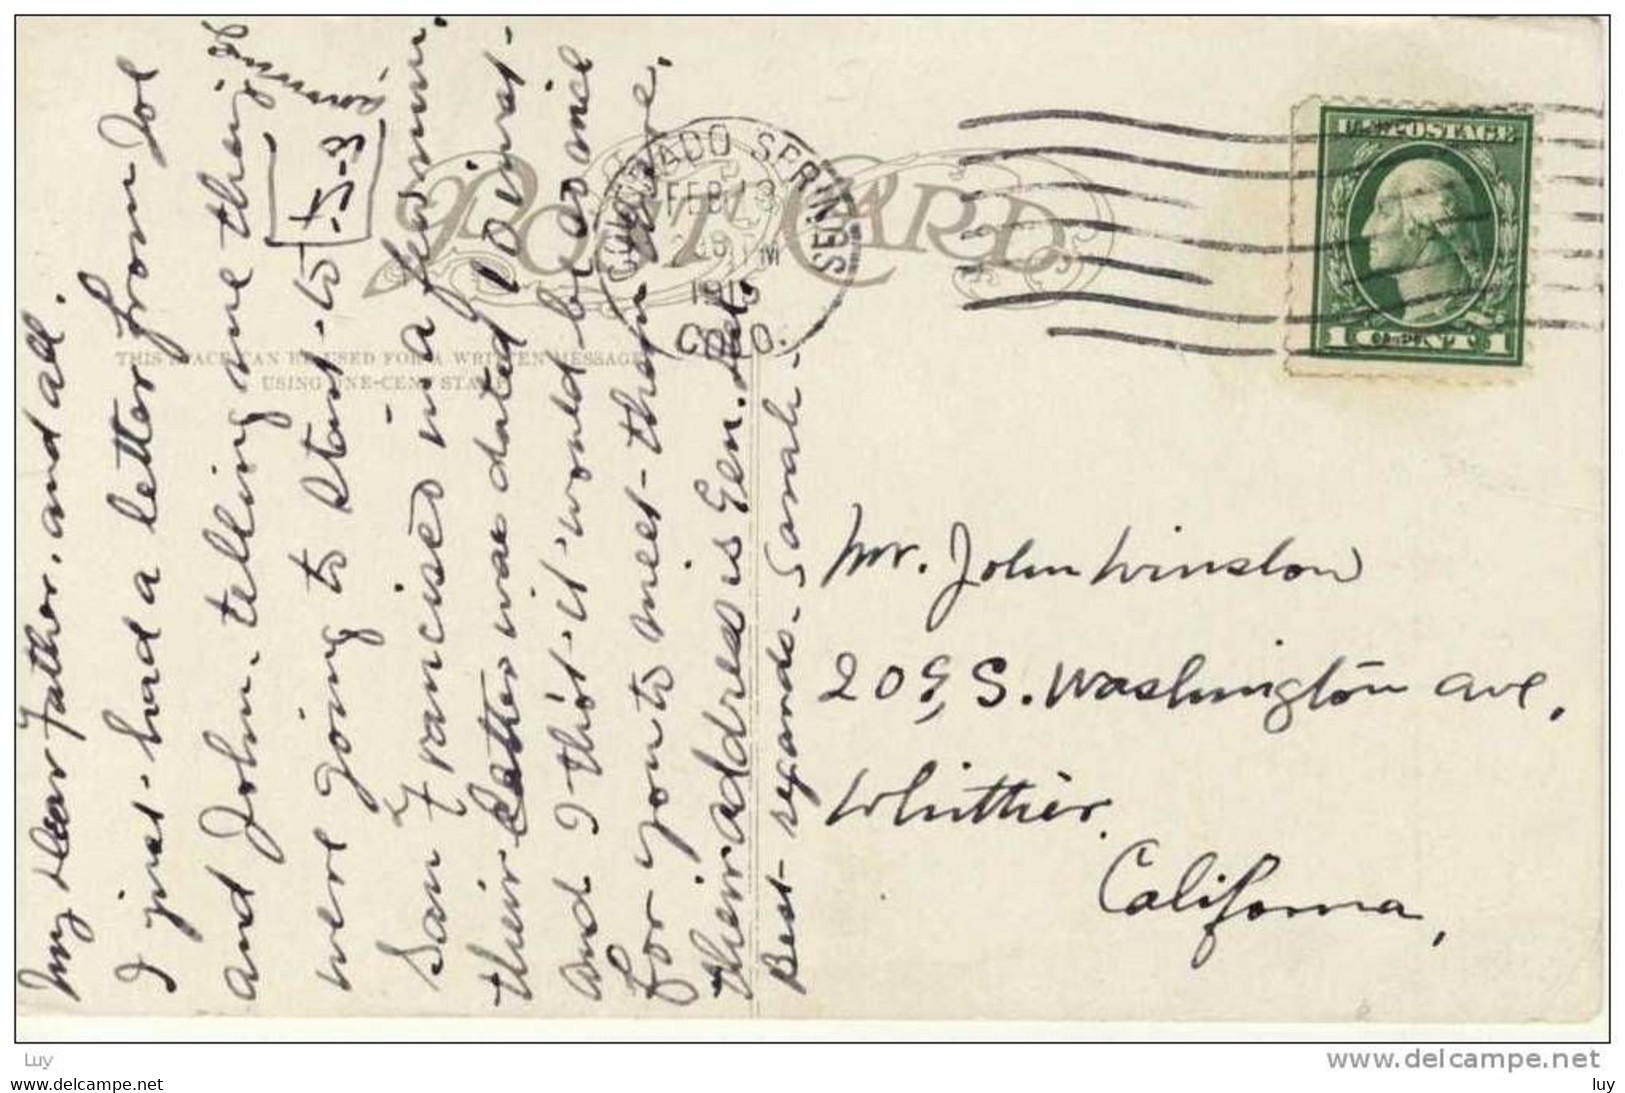 My Dear Father, and all.
I just had a letter from Joe
and John. telling me they
were going to start to
San Francisco in a few min.
their letter was dated
and I thot it would be so nice
for you to meet them there.
their address is Gen. Del.
Best regards - Sarah -
POST CARD
THIS SPACE CAN BE USED FOR A WRITTEN MESSAGE
USING ONE-CENT STAMP
COLORADO SPRINGS
FEB 13
COLO.
U.S. POSTAGE
1 CENT 1
Mr. John Winslow
209, S. Washington ave,
Whittier.
California,
Luy
www.delcampe.net
www.delcampe.net
luy